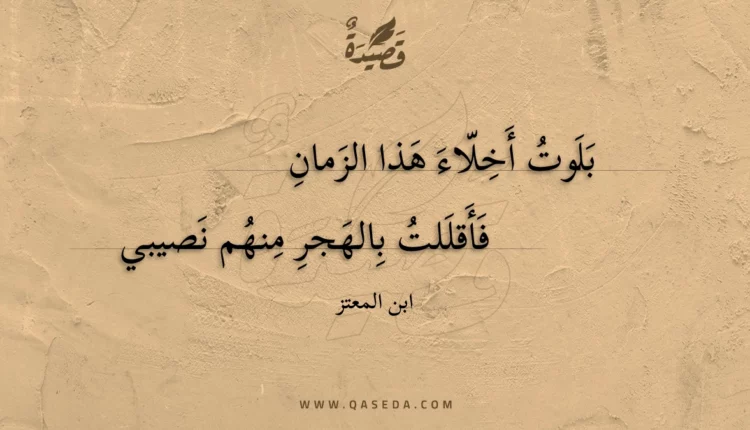 قَصِيْدَةٌ
بَلَوتُ أَخِلّاءَ هَذا الزَمانِ
فَأَقلَلتُ بِالهَجرِ مِنهُم نَصيبي
ابن المعتز
WWW.QASEDA.COM